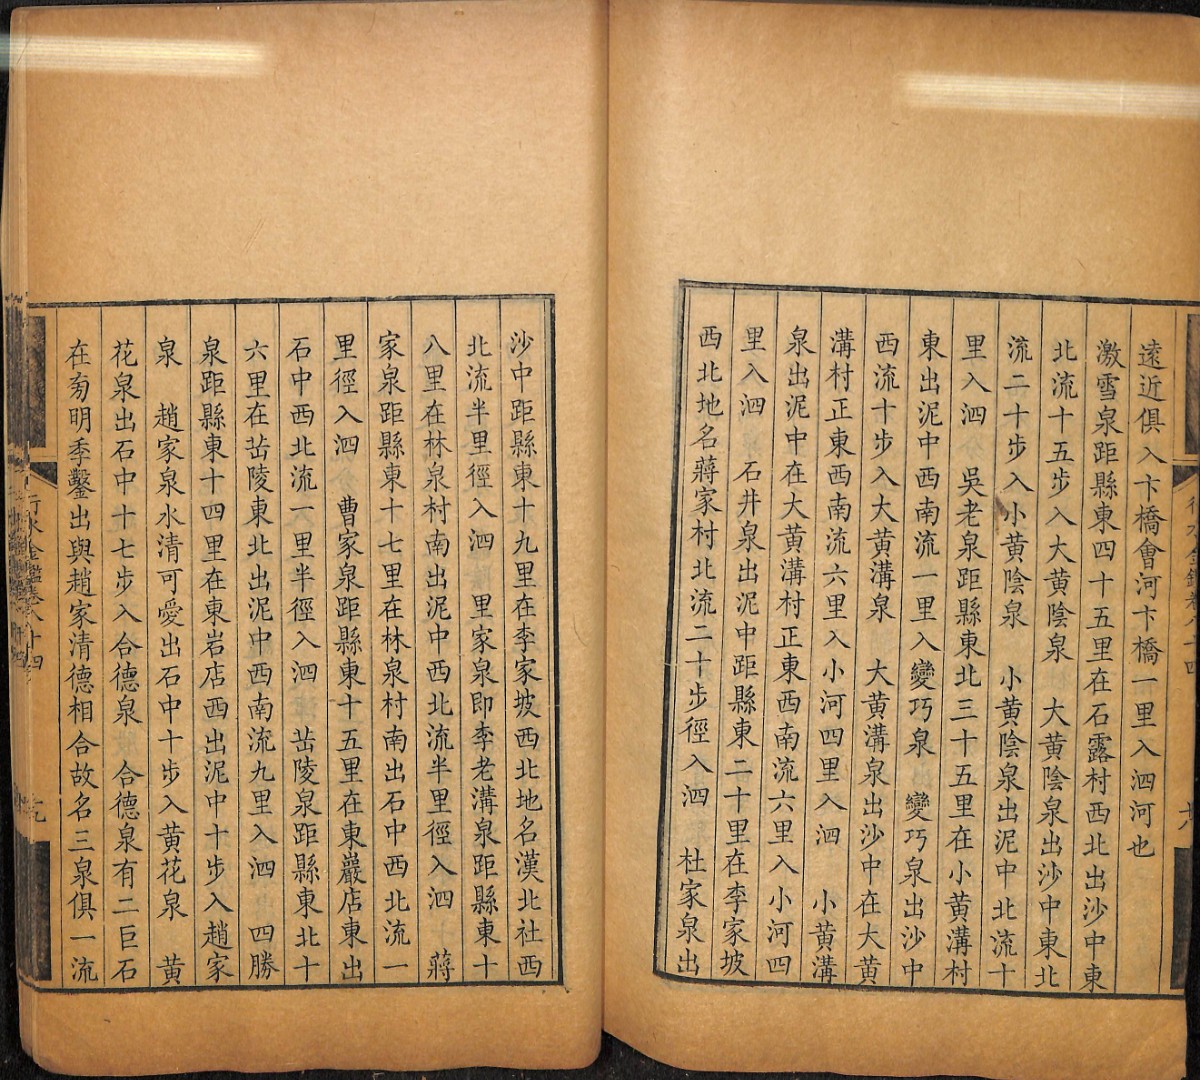 遠近俱入卞橋會河卞橋一里入泗河也
激雪泉距縣東四十五里在石露村西北出沙中東
北流十五步入大黃陰泉　大黃陰泉出沙中東北
流二十步入小黃陰泉　小黃陰泉出泥中北流十
里入泗　吳老泉距縣東北三十五里在小黃溝村
東出泥中西南流一里入變巧泉　變巧泉出沙中
西流十步入大黃溝泉　大黃溝泉出沙中在大黃
溝村正東西南流六里入小河四里入泗　小黃溝
泉出泥中在大黃溝村正東西南流六里入小河四
里入泗　石井泉出泥中距縣東二十里在李家坡
西北地名蔣家村北流二十步徑入泗　杜家泉出
沙中距縣東十九里在李家坡西北地名漢北社西
北流半里徑入泗　里家泉即李老溝泉距縣東十
八里在林泉村南出泥中西北流半里徑入泗　蔣
家泉距縣東十七里在林泉村南出石中西北流一
里徑入泗　曹家泉距縣東十五里在東巖店東出
石中西北流一里半徑入泗　岳陵泉距縣東北十
六里在岳陵東北出泥中西南流九里入泗　四勝
泉距縣東十四里在東岩店西出泥中十步入趙家
泉　趙家泉水清可愛出石中十步入黃花泉　黃
花泉出石中十七步入合德泉　合德泉有二巨石
在旁明季鑿出與趙家清德相合故名三泉俱一流
行水金鑑卷八十四